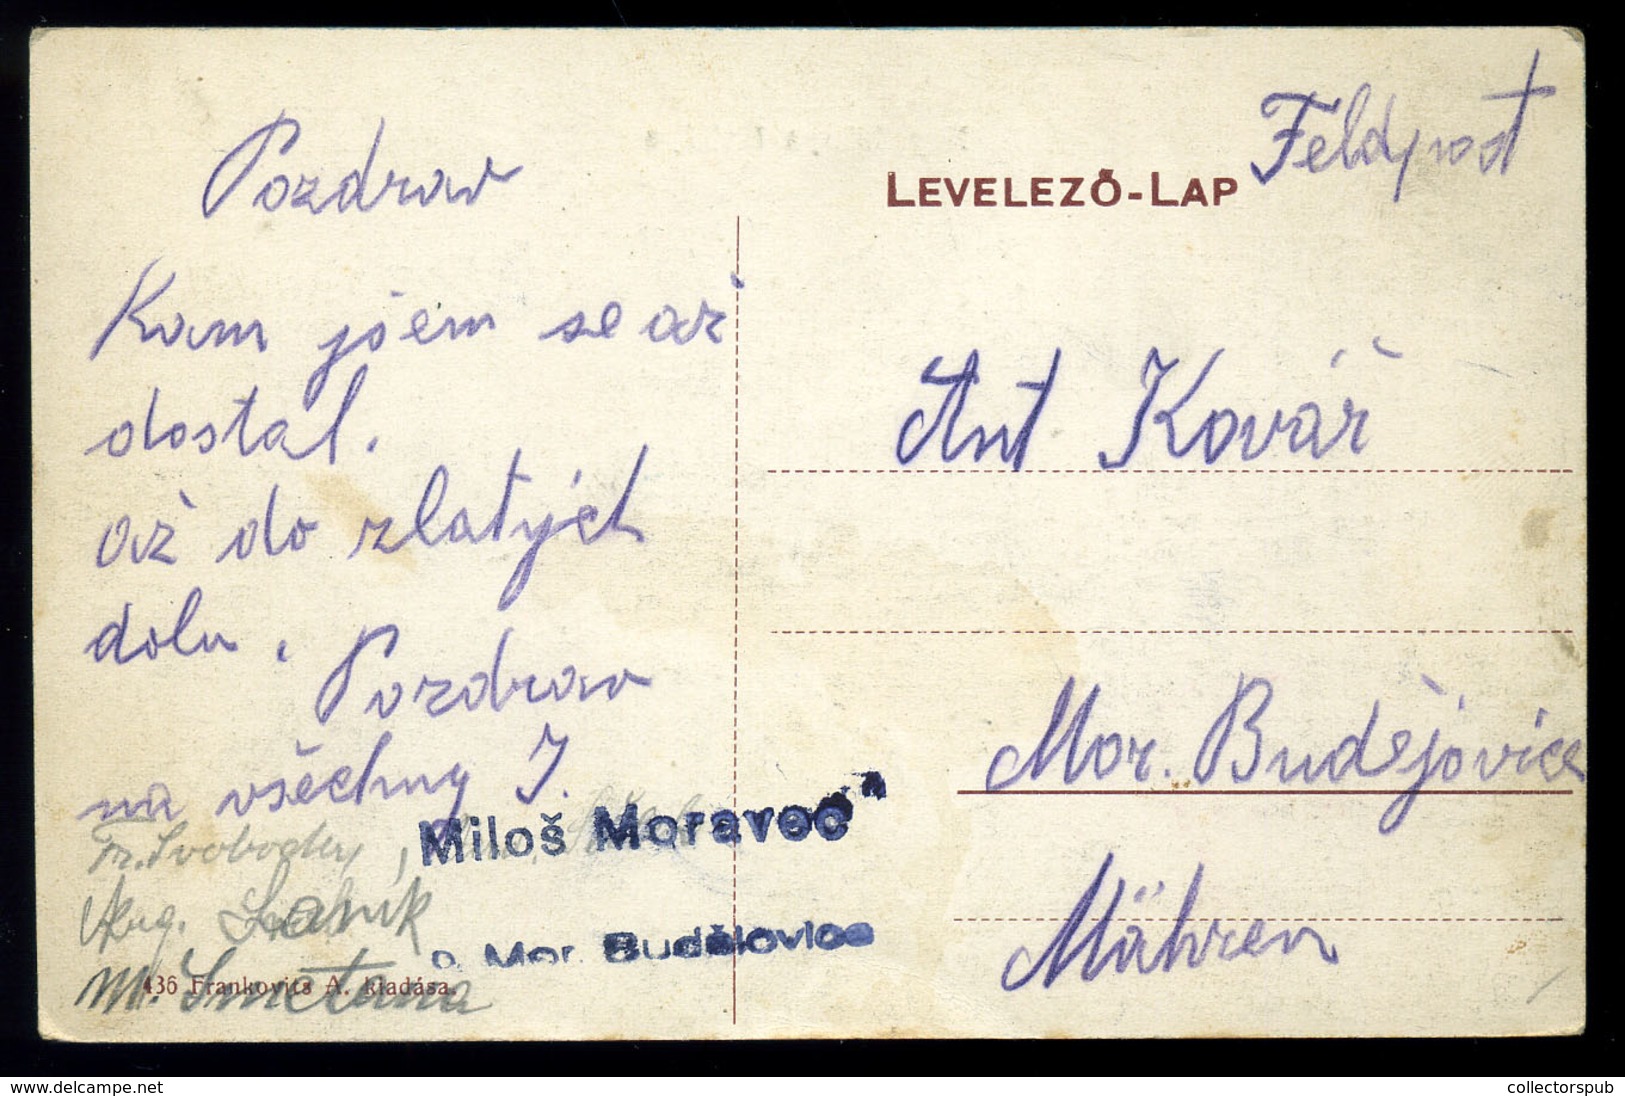 Pozdrav
Kam jsem se až
dostal.
až do zlatých
dolu. Pozdrav
na všechny J.
Fr. Svoboda,
Aug.
M. Smetana
Miloš Moravec
Mor. Budějovice
436 Frankovits A. kiadása.
LEVELEZŐ-LAP
Feldpost
Ant Kovář
Mor. Budějovice
Mähren
www.delcampe.net
collectorspub